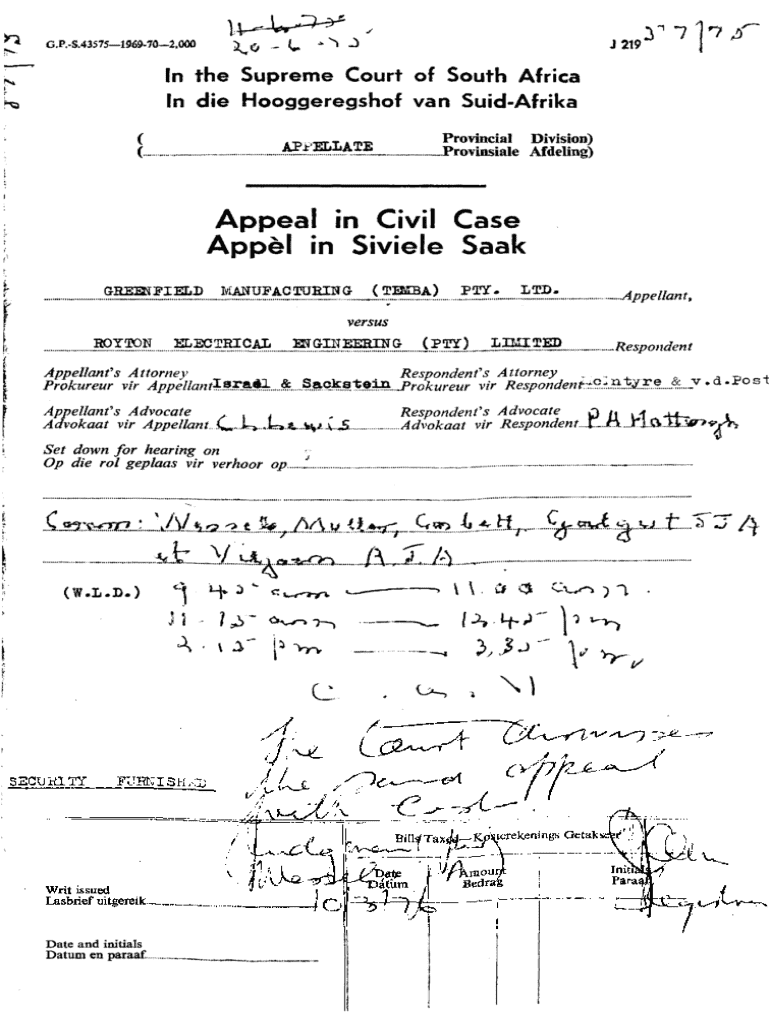 G.P.-S.43575—1969-70—2,000
J 219 37/75
In the Supreme Court of South Africa
In die Hooggeregshof van Suid-Afrika
( APPELLATE Provincial Division)
( Provinsiale Afdeling)
Appeal in Civil Case
Appèl in Siviele Saak
GREENFIELD MANUFACTURING (TEMBA) PTY. LTD. Appellant,
versus
ROYTON ELECTRICAL ENGINEERING (PTY) LIMITED Respondent
Appellant's Attorney Respondent's Attorney
Prokureur vir Appellant Israel & Sackstein Prokureur vir Respondent & v.d.Post
Appellant's Advocate Respondent's Advocate
Advokaat vir Appellant C L Lewis Advokaat vir Respondent P H
Set down for hearing on
Op die rol geplaas vir verhoor op
Coram: Wessels, Muller, Corbett, Galgut JJA
et Viljoen A.J.A
(W.L.D.) 9.45 am — 11.00 am.
11.15 am — 12.45 pm
2.15 pm — 3.35 pm
C.A.V
The Court dismisses
the said appeal
with Costs
SECURITY FURNISHED
Bills Taxed—Kosterekenings Getakseer
Judgment
Wessels
Date Amount Initials
Datum Bedrag Paraaf
10/3/76
Registrar
Writ issued
Lasbrief uitgereik
Date and initials
Datum en paraaf